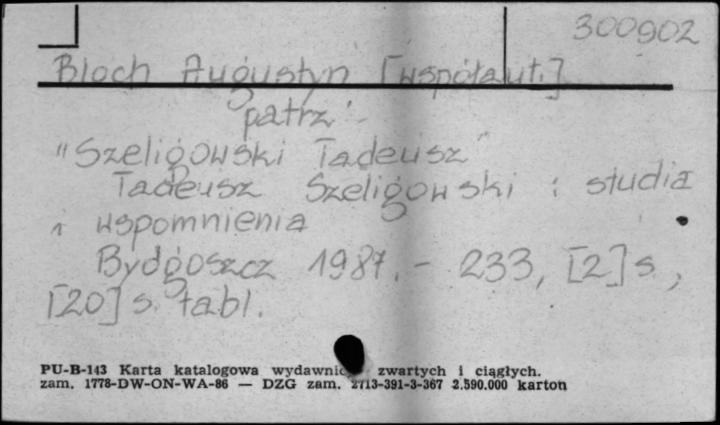 300902
Bloch Augustyn [współaut.]
patrz
"Szeligowski Tadeusz"
Tadeusz Szeligowski : studia
i wspomnienia
Bydgoszcz 1987. - 233, [2] s.,
[20] s. tabl.
PU-B-143 Karta katalogowa zwartych i ciągłych.
zam. 1778-DW-ON-WA-86 — DZG zam. 2713-391-3-367 2.590.000 karton